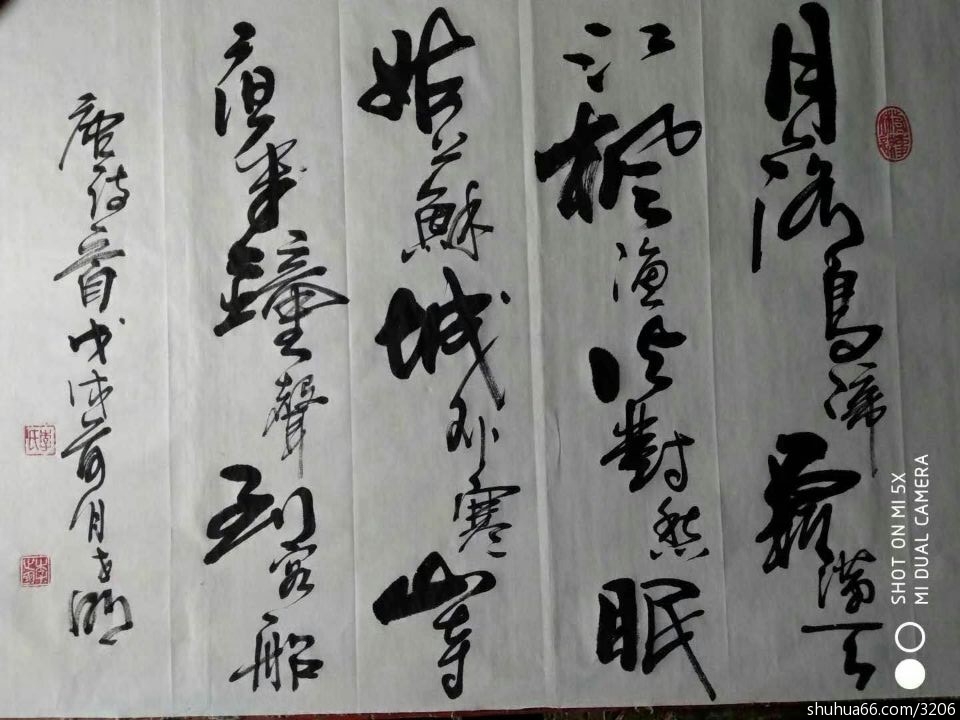 月落烏啼霜滿天
江楓漁火對愁眠
姑蘇城外寒山寺
夜半鐘聲到客船
唐詩一首戊戌荷月
李氏
SHOT ON MI 5X
MI DUAL CAMERA
shuhua66.com/3206